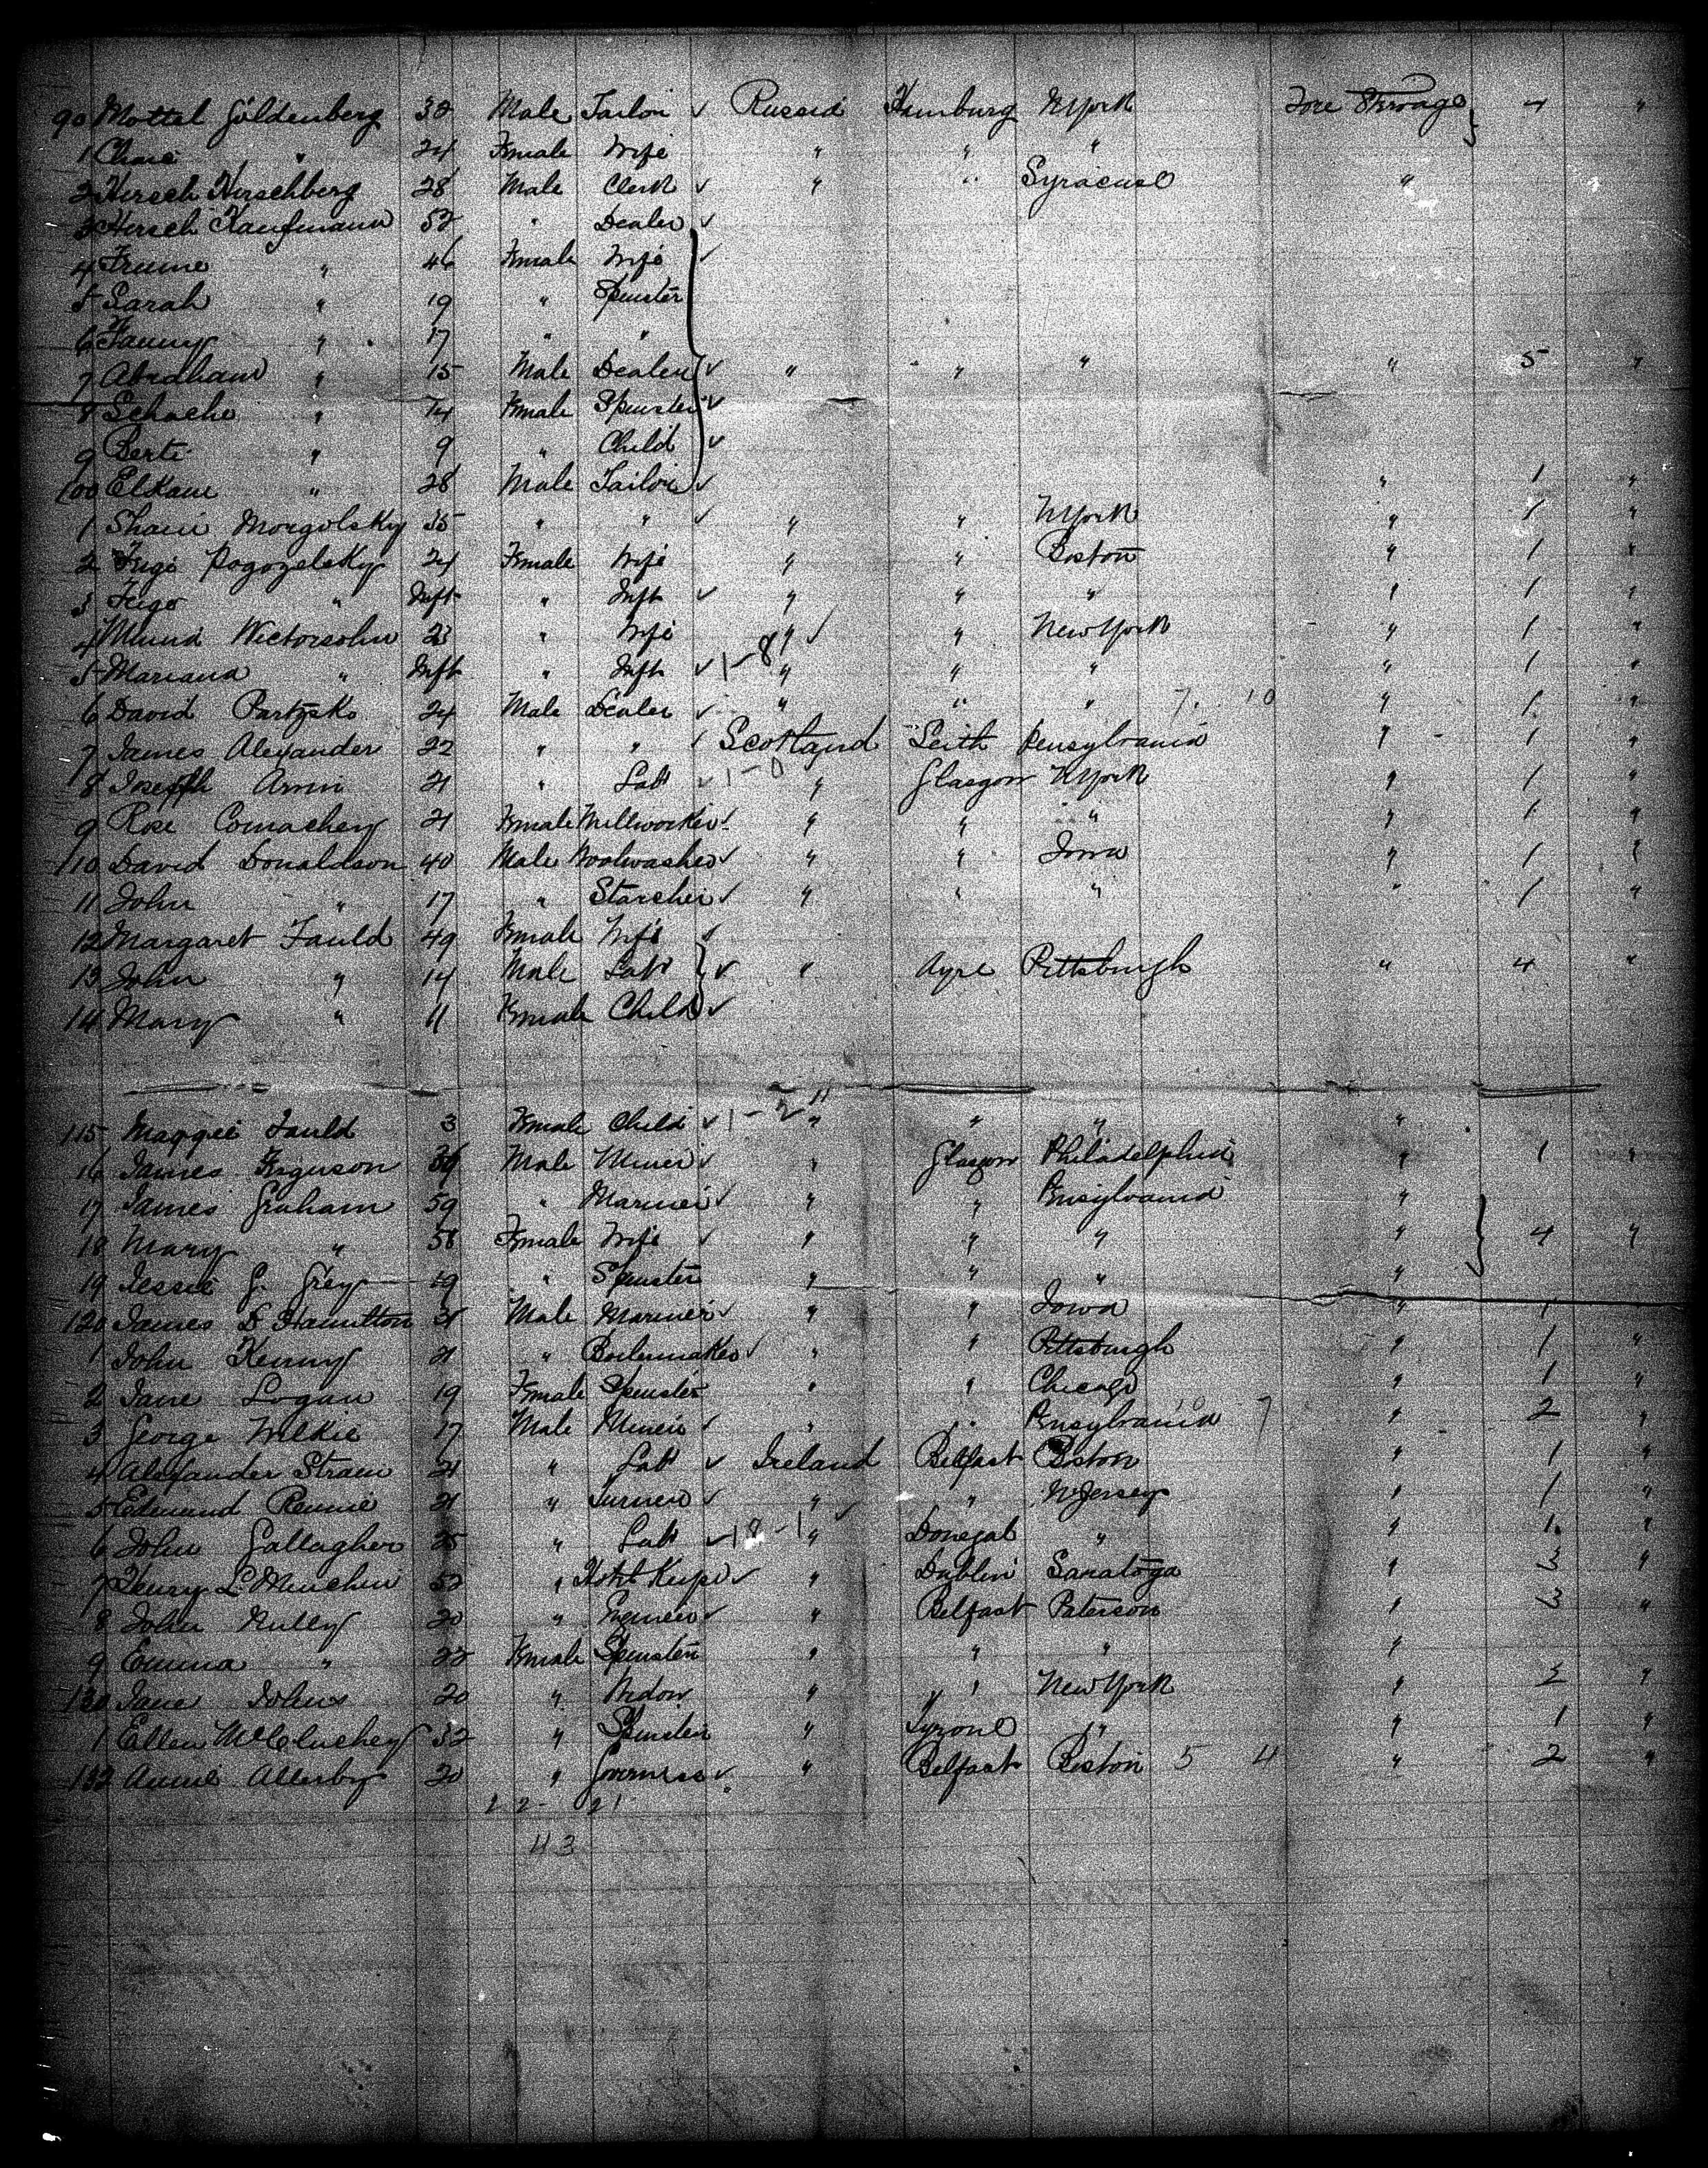 90 Mottel Goldenberg 38 Male Tailor ✓ Russia Hamburg NYork Fore Steerage 4 "
1 Chaie " 24 Female Wife " " "
2 Hersch Hirschberg 28 Male Clerk ✓ " " Syracuse "
3 Hersch Kaufmann 52 " Dealer ✓
4 Frume " 46 Female Wife ✓
5 Sarah " 19 " Spinster
6 Fanny " 17 " "
7 Abraham " 15 Male Dealer ✓ " " " " 5 "
8 Schache " 14 Female Spinster ✓
9 Berti " 9 " Child ✓
100 Elkane " 28 Male Tailor ✓ " 1 "
1 Morgolsky 35 " " ✓ " " NYork " 1 "
2 Feige Pogozelsky 24 Female Wife " " Boston " 1 "
3 Feige " Inft " Inft ✓ " " " " 1 "
4 Wictorsohn 23 " Wife " ✓ " New York " 1 "
5 Mariana " Inft " Inft ✓ 1-8 " " " " 1 "
6 David 24 Male Dealer ✓ " " " 7. 10 " 1 "
7 James Alexander 22 " " ✓ Scotland Leith Pensylvania " 1 "
8 Joseph 21 " Labr ✓ 1-0 " Glasgow NYork " 1 "
9 Rose Comachey 21 Female Millworker ✓ " " " " 1 "
110 David Donaldson 40 Male Woolwasher ✓ " " Iowa " 1 "
11 John " 17 " Starcher ✓ " " " " 1 "
12 Margaret Fauld 49 Female Wife ✓
13 John " 14 Male Labr ✓ " Ayre Pittsburgh " 4 "
14 Mary " 11 Female Child ✓
115 Maggie Fauld 3 Female Child ✓ 1-2 " " " "
16 James Ferguson Male Miner ✓ " Glasgow Philadelphia " 1 "
17 James Graham 59 " Mariner ✓ " " Pensylvania "
18 Mary " 58 Female Wife ✓ " " " " 4 "
19 Jessie G. Grey 19 " Spinster " " " "
120 James D Hamilton 21 Male Mariner ✓ " " Iowa " 1
1 John Kenny 21 " Boilermaker ✓ " " Pittsburgh " 1 "
2 Jane Logan 19 Female Spinster " " Chicago " 1 "
3 George Wilkie 17 Male Miner ✓ " " Pensylvania 7 " 2 "
4 Alexander Strain 21 " Labr ✓ Ireland Belfast Boston " 1 "
5 Edmund Rennie 21 " Turner ✓ " " NJersey " 1 "
6 John Gallagher 25 " Labr ✓ 18-1 " Donegal " " 1 "
7 Henry L Minchin 52 " Hotel Keeper ✓ " Dublin Saratoga " 3 "
8 John 20 " Engineer ✓ " Belfast Paterson " 3 "
9 Emma " 22 Female Spinster " " " "
130 Jane Johns 20 " Widow " " New York " 2 "
1 Ellen McCluskey 32 " Spinster " Tyrone " " 1 "
132 Annie Allerby 20 " Governess ✓ " Belfast Boston 5 4 " 2 "
22 - 21
43